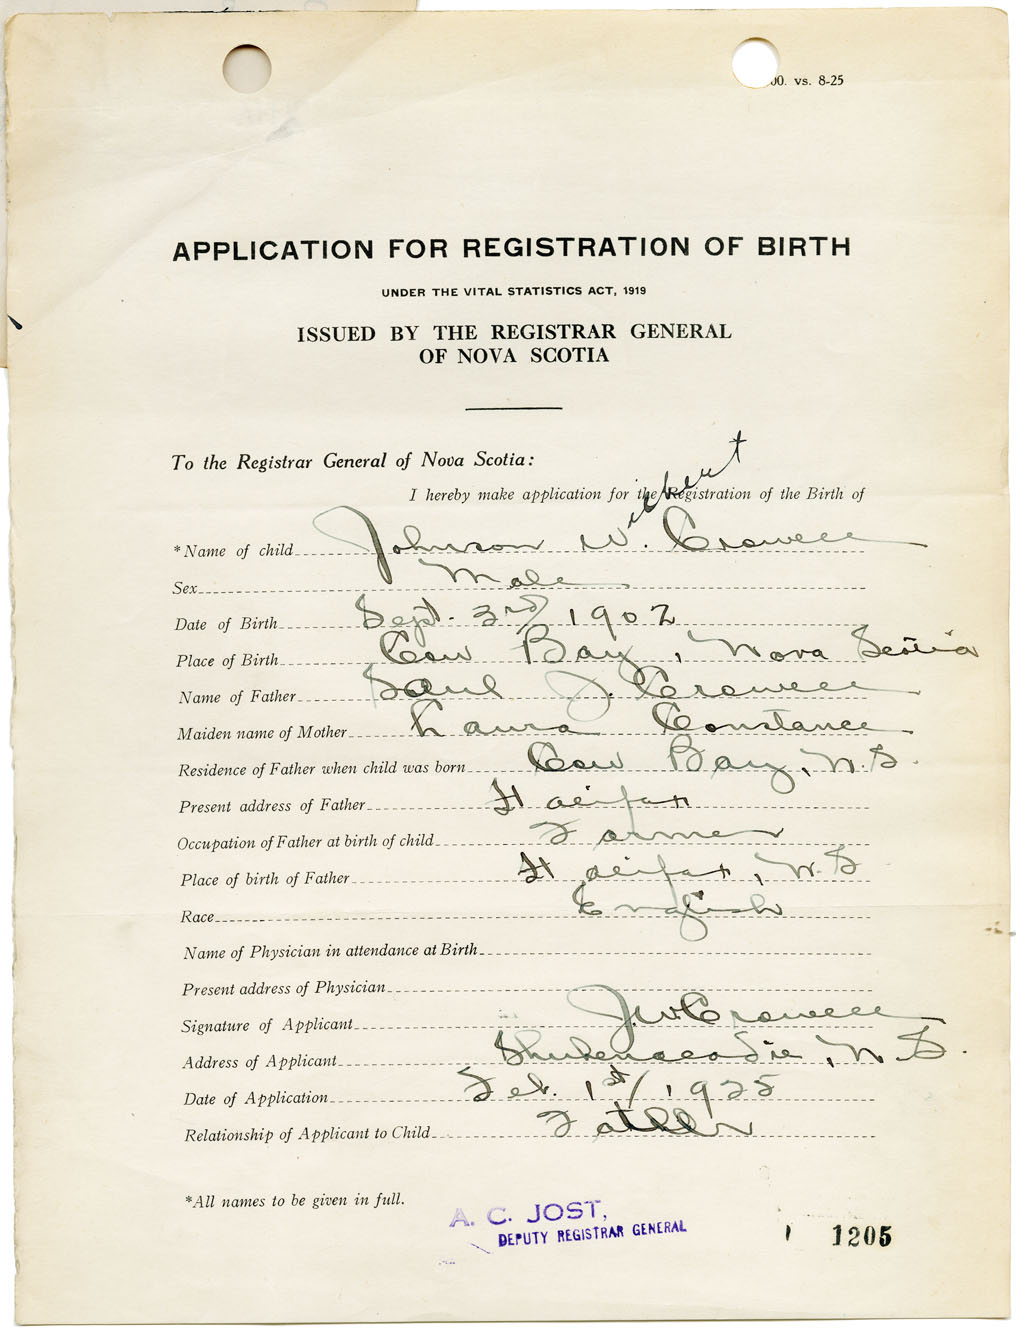 00. vs. 8-25
APPLICATION FOR REGISTRATION OF BIRTH
UNDER THE VITAL STATISTICS ACT, 1919
ISSUED BY THE REGISTRAR GENERAL
OF NOVA SCOTIA
To the Registrar General of Nova Scotia:
I hereby make application for the Registration of the Birth of
Wilbert
*Name of child Johnson W. Crowell
Sex Male
Date of Birth Sept. 3rd/ 1902
Place of Birth Cow Bay, Nova Scotia
Name of Father Saul J. Crowell
Maiden name of Mother Laura Constance
Residence of Father when child was born Cow Bay, N.S.
Present address of Father Halifax
Occupation of Father at birth of child Farmer
Place of birth of Father Halifax, N.S
Race English
Name of Physician in attendance at Birth
Present address of Physician
Signature of Applicant J.W. Crowell
Address of Applicant Shubenacadie, N.S.
Date of Application Feb. 1st/ 1925
Relationship of Applicant to Child Father
*All names to be given in full.
A. C. JOST,
DEPUTY REGISTRAR GENERAL
1205